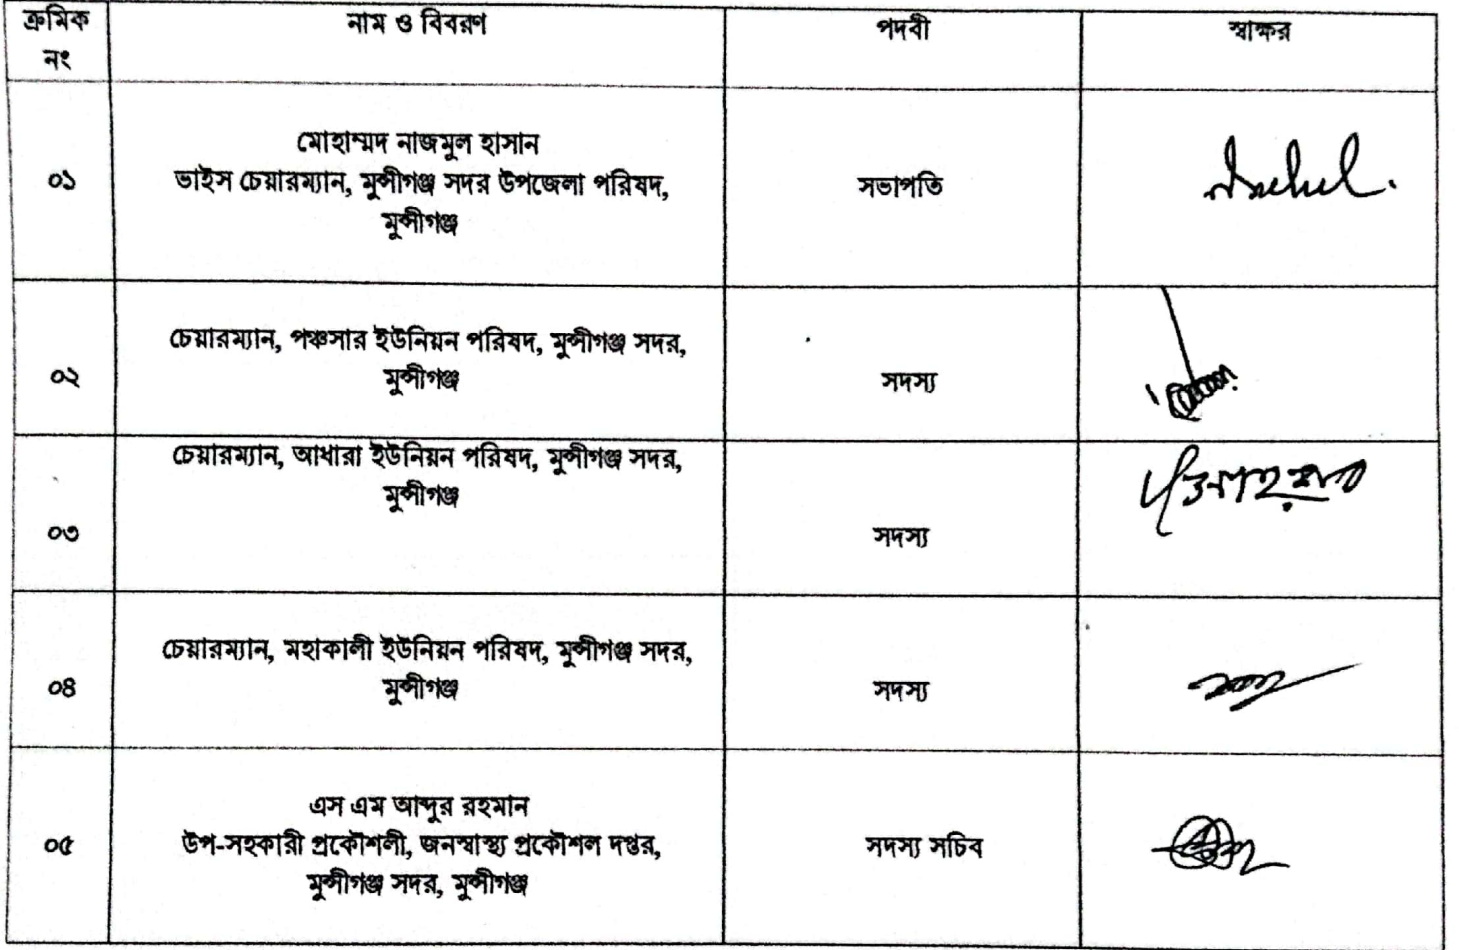 ক্রমিক নং	নাম ও বিবরণ	পদবী	স্বাক্ষর
০১	মোহাম্মদ নাজমুল হাসান
ভাইস চেয়ারম্যান, মুন্সীগঞ্জ সদর উপজেলা পরিষদ,
মুন্সীগঞ্জ	সভাপতি
০২	চেয়ারম্যান, পঞ্চসার ইউনিয়ন পরিষদ, মুন্সীগঞ্জ সদর,
মুন্সীগঞ্জ	সদস্য
০৩	চেয়ারম্যান, আধারা ইউনিয়ন পরিষদ, মুন্সীগঞ্জ সদর,
মুন্সীগঞ্জ	সদস্য
০৪	চেয়ারম্যান, মহাকালী ইউনিয়ন পরিষদ, মুন্সীগঞ্জ সদর,
মুন্সীগঞ্জ	সদস্য
০৫	এস এম আব্দুর রহমান
উপ-সহকারী প্রকৌশলী, জনস্বাস্থ্য প্রকৌশল দপ্তর,
মুন্সীগঞ্জ সদর, মুন্সীগঞ্জ	সদস্য সচিব